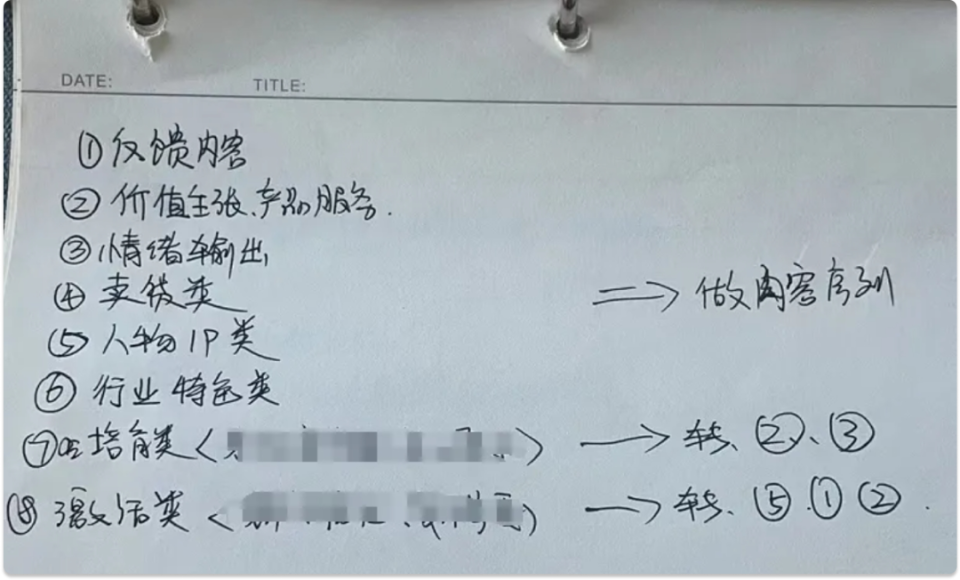 DATE: TITLE:
①反馈内容
②价值主张、产品服务.
③情绪输出
④卖货类
⑤人物IP类
⇒做内容序列
⑥行业特色类
⑦培育类< >→转、②、③
⑧激活类< )→转、⑤.①②.